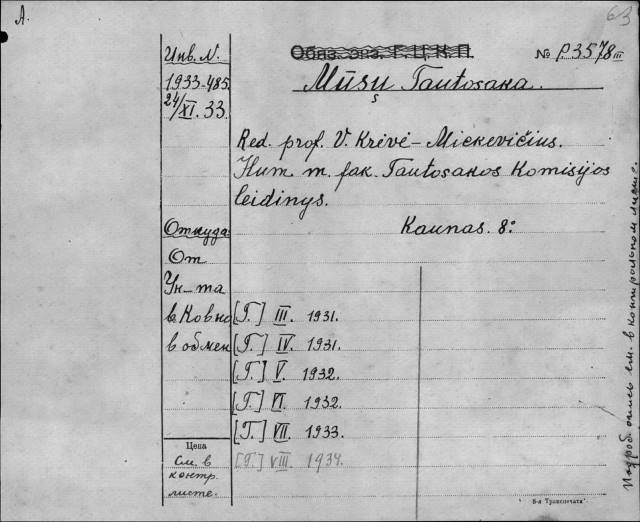 A.
63
Инв. N.
Обяз. экз. Г. Ц. К. П.
№ P.3578 III
1933-485.
24/XI. 33.
Mūsų Tautosaka.
Red. prof. V. Krėvė-Mickevičius.
Hum. m. fak. Tautosakos Komisijos
leidinys.
Откуда
Kaunas. 8:
От
Ун-та
в Ковно
[Т.] III. 1931.
в обмен
[Т.] IV. 1931.
[Т.] V. 1932.
[Т.] VI. 1932.
[Т.] VII. 1933.
Цена
[Т.] VIII. 1934.
см. в
контр.
листе.
8-я Транспечать
Подроб. опись см. в контрольном листе.